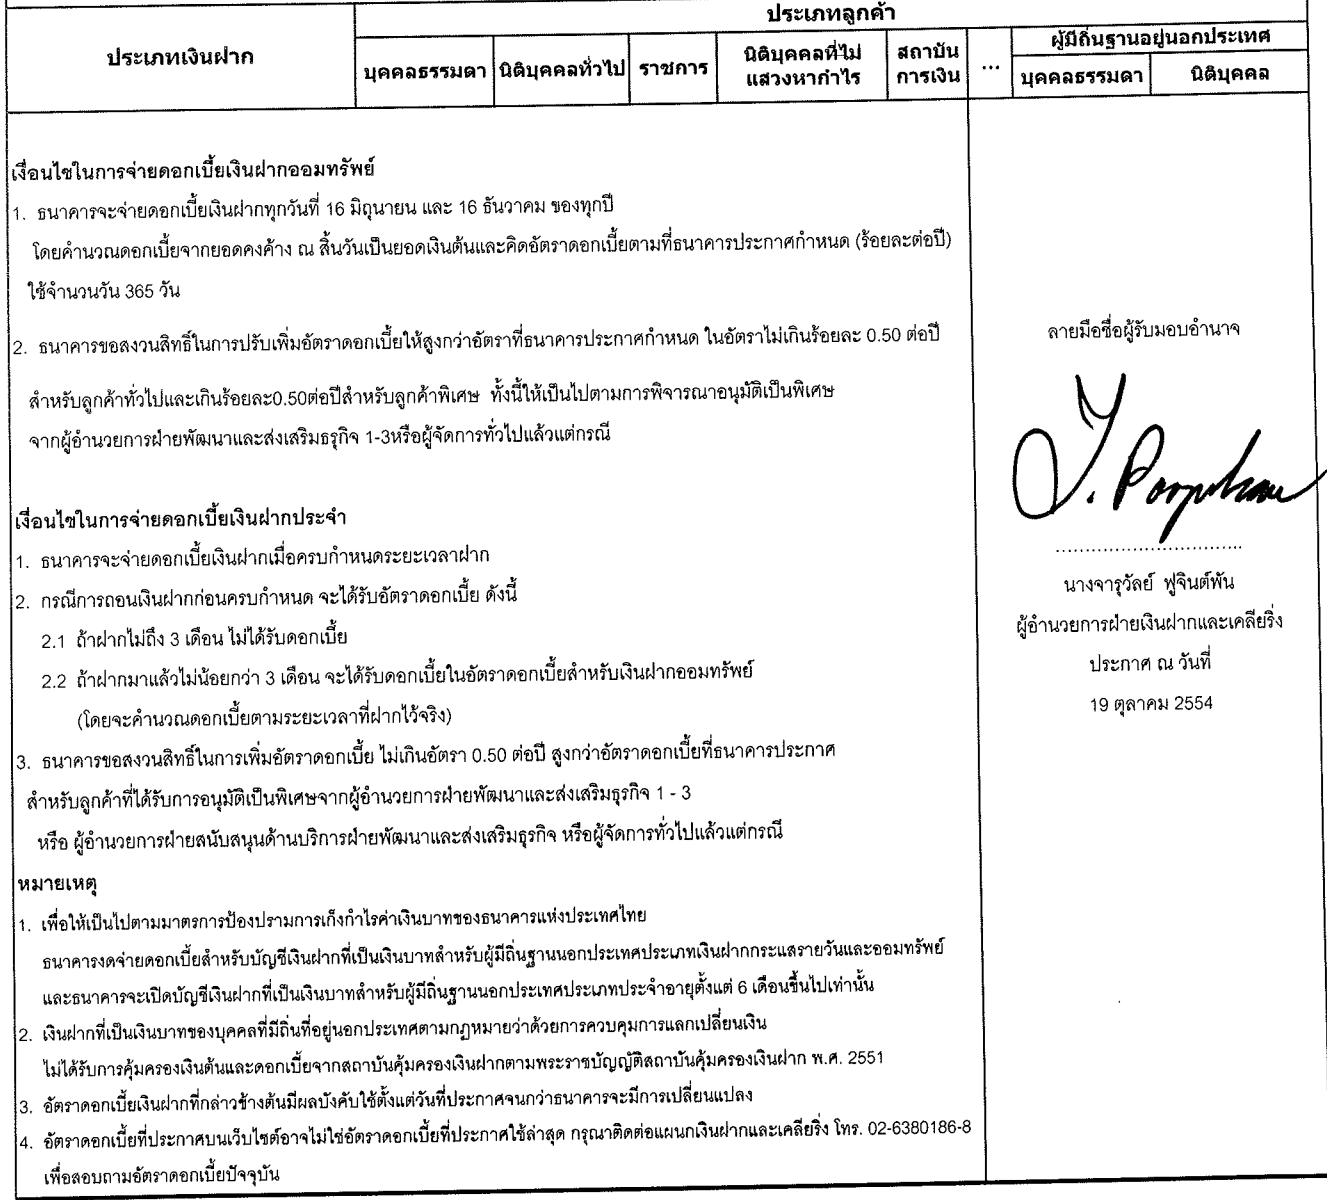 ประเภทเงินฝาก
ประเภทลูกค้า
บุคคลธรรมดา
นิติบุคคลทั่วไป
ราชการ
นิติบุคคลที่ไม่
แสวงหากำไร
สถาบัน
การเงิน
...
ผู้มีถิ่นฐานอยู่นอกประเทศ
บุคคลธรรมดา
นิติบุคคล
เงื่อนไขในการจ่ายดอกเบี้ยเงินฝากออมทรัพย์
1. ธนาคารจะจ่ายดอกเบี้ยเงินฝากทุกวันที่ 16 มิถุนายน และ 16 ธันวาคม ของทุกปี
โดยคำนวณดอกเบี้ยจากยอดคงค้าง ณ สิ้นวันเป็นยอดเงินต้นและคิดอัตราดอกเบี้ยตามที่ธนาคารประกาศกำหนด (ร้อยละต่อปี)
ใช้จำนวนวัน 365 วัน
2. ธนาคารขอสงวนสิทธิ์ในการปรับเพิ่มอัตราดอกเบี้ยให้สูงกว่าอัตราที่ธนาคารประกาศกำหนด ในอัตราไม่เกินร้อยละ 0.50 ต่อปี
สำหรับลูกค้าทั่วไปและเกินร้อยละ0.50ต่อปีสำหรับลูกค้าพิเศษ ทั้งนี้ให้เป็นไปตามการพิจารณาอนุมัติเป็นพิเศษ
จากผู้อำนวยการฝ่ายพัฒนาและส่งเสริมธุรกิจ 1-3หรือผู้จัดการทั่วไปแล้วแต่กรณี
เงื่อนไขในการจ่ายดอกเบี้ยเงินฝากประจำ
1. ธนาคารจะจ่ายดอกเบี้ยเงินฝากเมื่อครบกำหนดระยะเวลาฝาก
2. กรณีการถอนเงินฝากก่อนครบกำหนด จะได้รับอัตราดอกเบี้ย ดังนี้
2.1 ถ้าฝากไม่ถึง 3 เดือน ไม่ได้รับดอกเบี้ย
2.2 ถ้าฝากมาแล้วไม่น้อยกว่า 3 เดือน จะได้รับดอกเบี้ยในอัตราดอกเบี้ยสำหรับเงินฝากออมทรัพย์
(โดยจะคำนวณดอกเบี้ยตามระยะเวลาที่ฝากไว้จริง)
3. ธนาคารขอสงวนสิทธิ์ในการเพิ่มอัตราดอกเบี้ย ไม่เกินอัตรา 0.50 ต่อปี สูงกว่าอัตราดอกเบี้ยที่ธนาคารประกาศ
สำหรับลูกค้าที่ได้รับการอนุมัติเป็นพิเศษจากผู้อำนวยการฝ่ายพัฒนาและส่งเสริมธุรกิจ 1 - 3
หรือ ผู้อำนวยการฝ่ายสนับสนุนด้านบริการฝ่ายพัฒนาและส่งเสริมธุรกิจ หรือผู้จัดการทั่วไปแล้วแต่กรณี
หมายเหตุ
1. เพื่อให้เป็นไปตามมาตรการป้องปรามการเก็งกำไรค่าเงินบาทของธนาคารแห่งประเทศไทย
ธนาคารงดจ่ายดอกเบี้ยสำหรับบัญชีเงินฝากที่เป็นเงินบาทสำหรับผู้มีถิ่นฐานนอกประเทศประเภทเงินฝากกระแสรายวันและออมทรัพย์
และธนาคารจะเปิดบัญชีเงินฝากที่เป็นเงินบาทสำหรับผู้มีถิ่นฐานนอกประเทศประเภทประจำอายุตั้งแต่ 6 เดือนขึ้นไปเท่านั้น
2. เงินฝากที่เป็นเงินบาทของบุคคลที่มีถิ่นที่อยู่นอกประเทศตามกฎหมายว่าด้วยการควบคุมการแลกเปลี่ยนเงิน
ไม่ได้รับการคุ้มครองเงินต้นและดอกเบี้ยจากสถาบันคุ้มครองเงินฝากตามพระราชบัญญัติสถาบันคุ้มครองเงินฝาก พ.ศ. 2551
3. อัตราดอกเบี้ยเงินฝากที่กล่าวข้างต้นมีผลบังคับใช้ตั้งแต่วันที่ประกาศจนกว่าธนาคารจะมีการเปลี่ยนแปลง
4. อัตราดอกเบี้ยที่ประกาศบนเว็บไซต์อาจไม่ใช่อัตราดอกเบี้ยที่ประกาศใช้ล่าสุด กรุณาติดต่อแผนกเงินฝากและเคลียริ่ง โทร. 02-6380186-8
เพื่อสอบถามอัตราดอกเบี้ยปัจจุบัน
ลายมือชื่อผู้รับมอบอำนาจ
...............................
นางจารุวัลย์ ฟูจินต์พัน
ผู้อำนวยการฝ่ายเงินฝากและเคลียริ่ง
ประกาศ ณ วันที่
19 ตุลาคม 2554